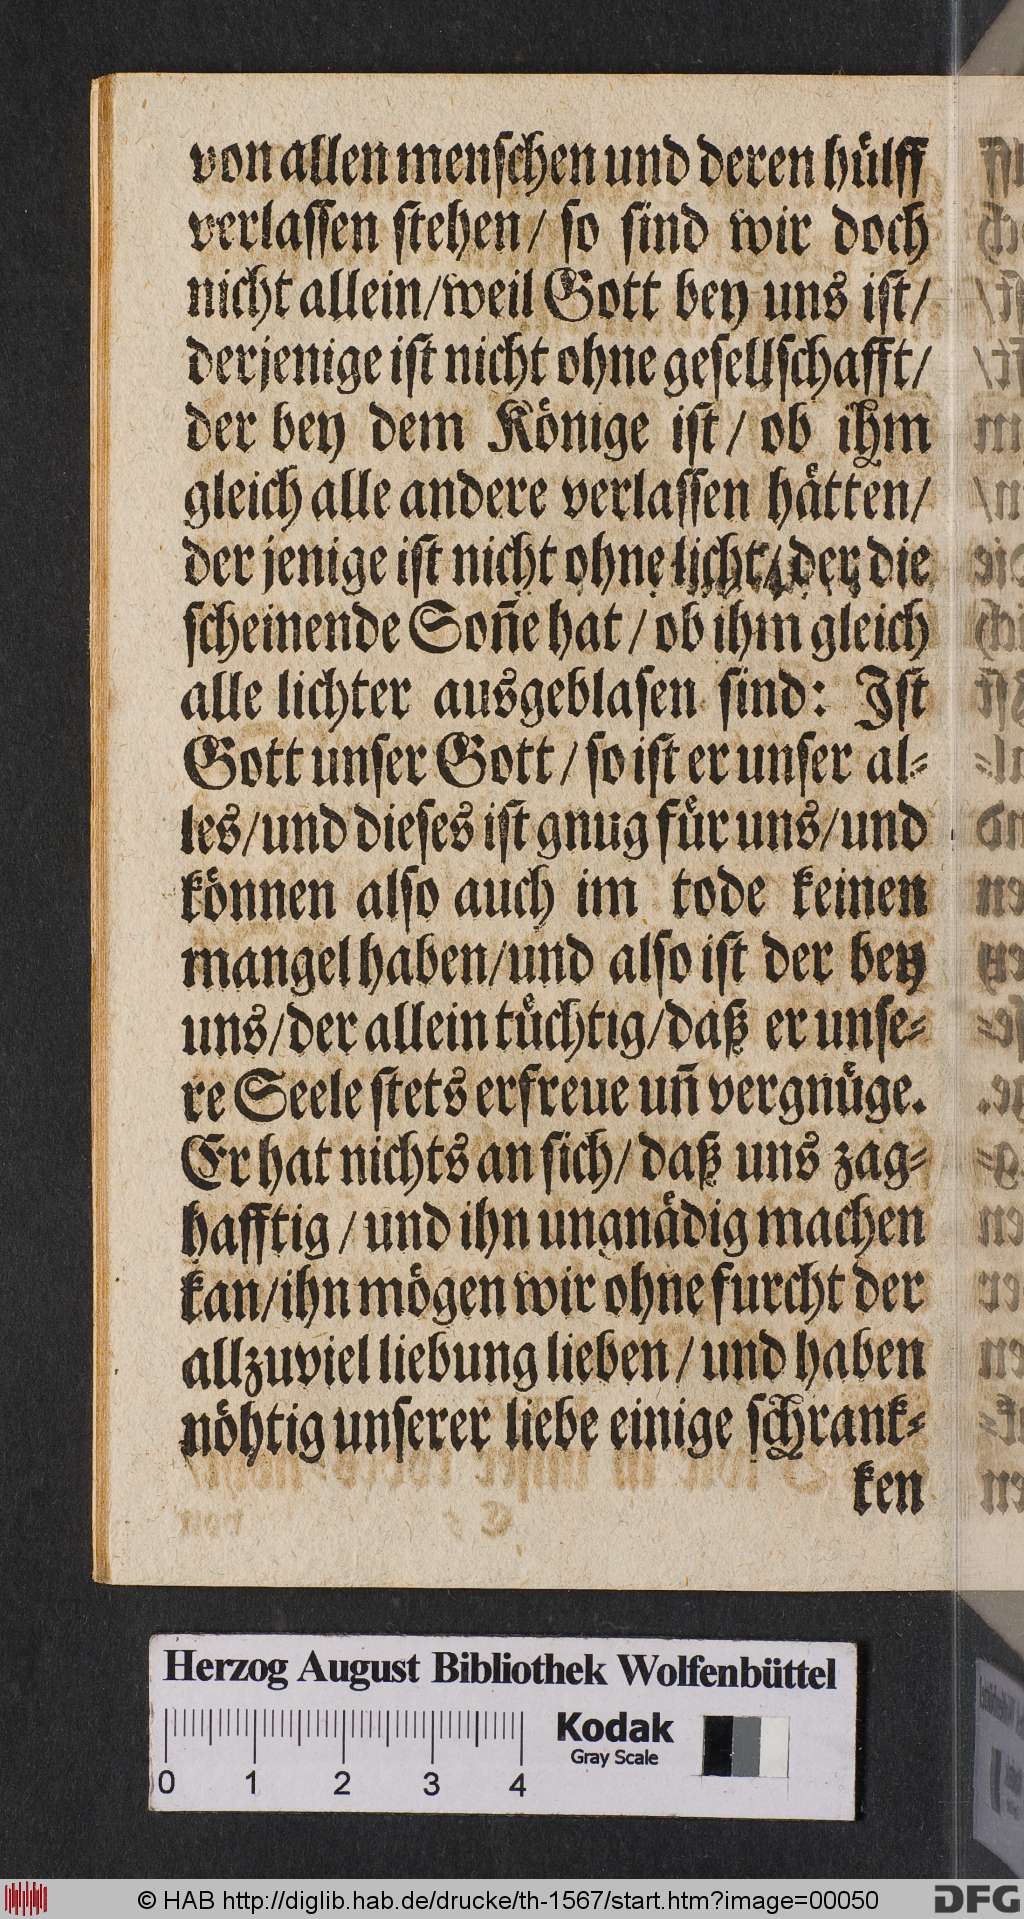 von allen menschen und deren hülff
verlassen stehen/ so sind wir doch
nicht allein/weil Gott bey uns ist/
derjenige ist nicht ohne gesellschafft/
der bey dem Könige ist/ ob ihm
gleich alle andere verlassen hätten/
der jenige ist nicht ohne licht/ der die
scheinende Soñe hat / ob ihm gleich
alle lichter ausgeblasen sind: Ist
Gott unser Gott / so ist er unser al-
les/und dieses ist gnug für uns/und
können also auch im tode keinen
mangel haben/und also ist der bey
uns/der allein tüchtig/daß er unse-
re Seele stets erfreue uñ vergnüge.
Er hat nichts an sich/ daß uns zag-
hafftig / und ihn ungnädig machen
kan/ihn mögen wir ohne furcht der
allzuviel liebung lieben / und haben
nöhtig unserer liebe einige schrank-
ken
Herzog August Bibliothek Wolfenbüttel
Kodak
Gray Scale
0 1 2 3 4
© HAB http://diglib.hab.de/drucke/th-1567/start.htm?image=00050
DFG